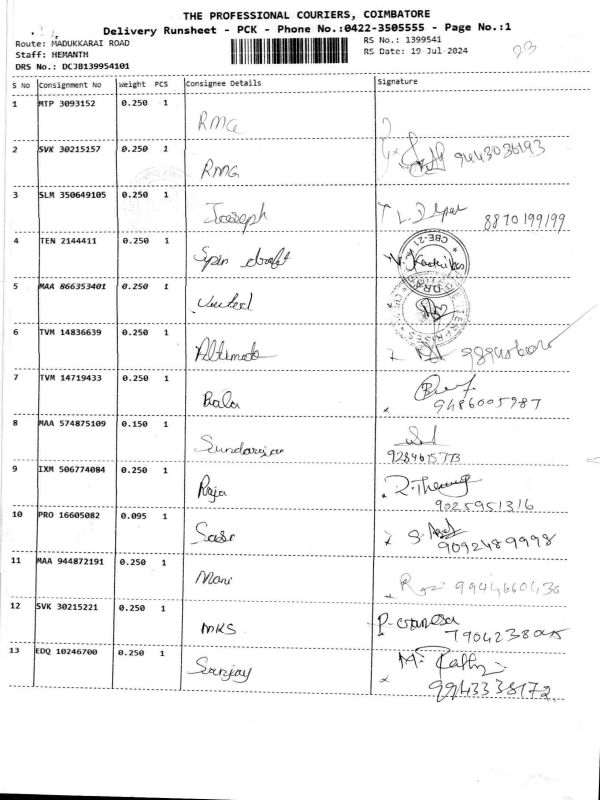 THE PROFESSIONAL COURIERS, COIMBATORE
Delivery Runsheet - PCK - Phone No.:0422-3505555 - Page No.:1
Route: MADUKKARAI ROAD
RS No.: 1399541
Staff: HEMANTH
RS Date: 19-Jul-2024
23
DRS No.: DCJB139954101
S No Consignment No Weight PCS Consignee Details Signature
1 MTP 3093152 0.250 1 RMG
2 SVK 30215157 0.250 1 RMG 9443036193
3 SLM 350649105 0.250 1 Joseph 8870199199
4 TEN 2144411 0.250 1 Spin draft
CBE-21
5 MAA 866353401 0.250 1 United
6 TVM 14836639 0.250 1
7 TVM 14719433 0.250 1 Bala
9486005987
8 MAA 574875109 0.150 1 Sundarajan
9284615773
9 IXM 506774084 0.250 1 Raja
9025951316
10 PRO 16605082 0.095 1 Sasi
9092489998
11 MAA 944872191 0.250 1 Mani
12 SVK 30215221 0.250 1 MKS
13 EDQ 10246700 0.250 1 Sanjay
9943338172